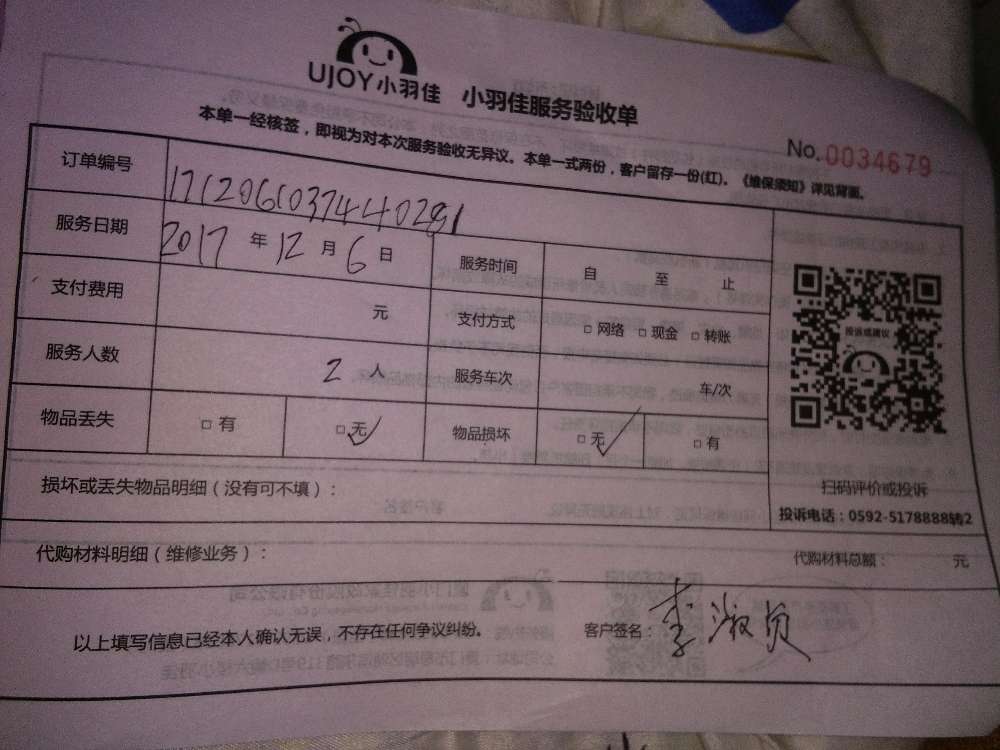 UJOY小羽佳 小羽佳服务验收单
No.0034679
本单一经核签，即视为对本次服务验收无异议。本单一式两份，客户留存一份(红)。《维保须知》详见背面。
订单编号 1712061037440281
服务日期 2017 年 12 月 6 日 服务时间 自 至 止
支付费用 元 支付方式 □ 网络 □ 现金 □ 转账
服务人数 2 人 服务车次 车/次
物品丢失 □ 有 □ 无 ✓ 物品损坏 □ 无 ✓ □ 有
投诉或建议
扫码评价或投诉
投诉电话：0592-5178888转2
损坏或丢失物品明细（没有可不填）：
代购材料明细（维修业务）： 代购材料总额： 元
以上填写信息已经本人确认无误，不存在任何争议纠纷。 客户签名：李淑贞